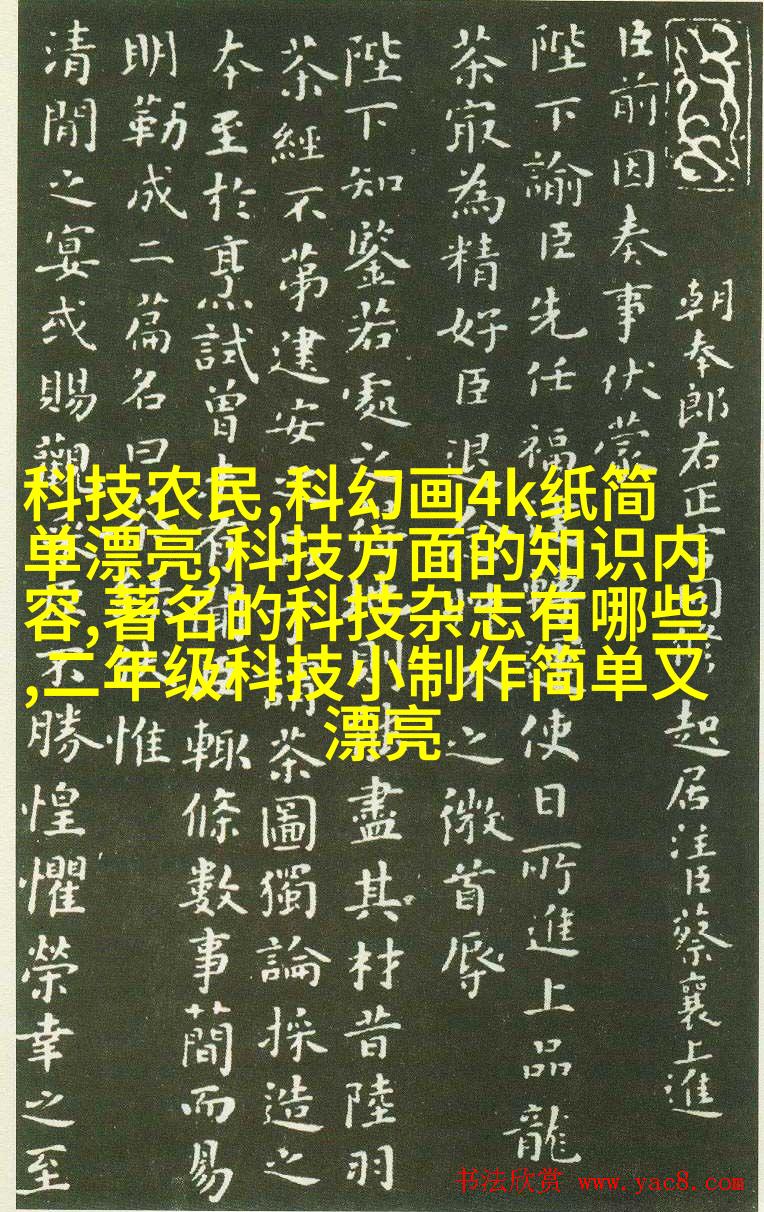 朝奉郎右正言同修起居注臣蔡襄上進
臣前因奏事伏蒙
陛下諭臣先任福 轉 使日所進上品龍
茶寂為精好臣退 之微首辱
陛下知鑒若處之得 則 盡其材昔陸羽
茶經不苐建安 謂茶圖獨論採造之
本至於烹試曾 有 輒條數事簡而易
明勒成二篇名曰 惟
清閒之宴或賜觀 不勝惶懼榮幸之至
科技农民,科幻画4k纸简
单漂亮,科技方面的知识内
容,著名的科技杂志有哪些
,二年级科技小制作简单又
漂亮
书法欣赏 www.yac8.com